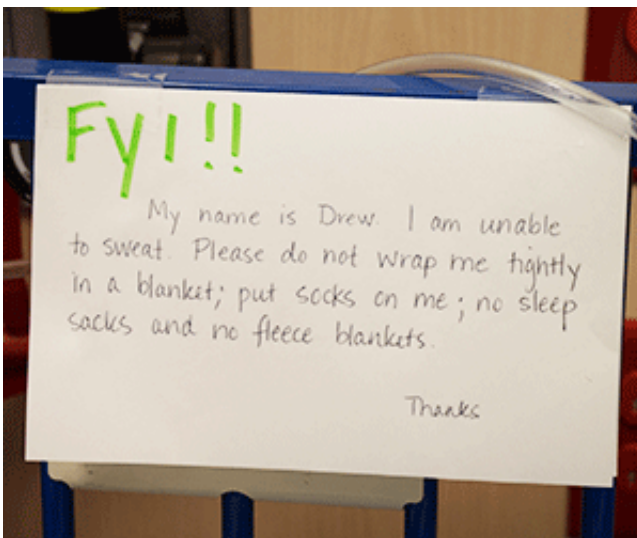 FYI!!
My name is Drew. I am unable
to sweat. Please do not wrap me tightly
in a blanket; put socks on me; no sleep
sacks and no fleece blankets.
Thanks